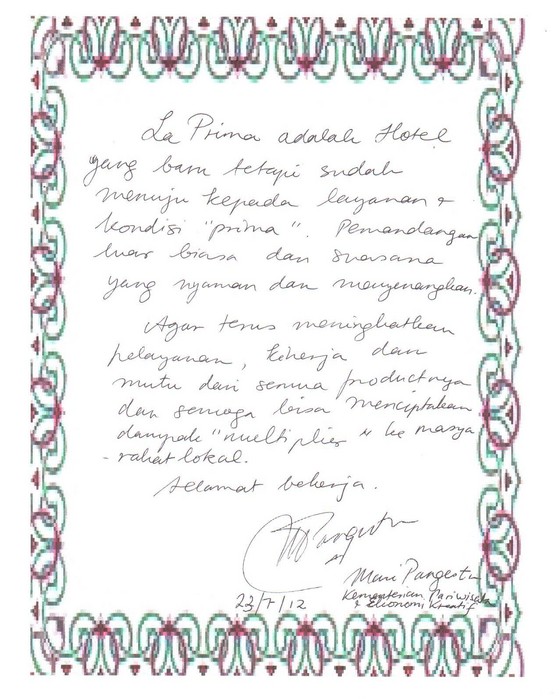 La Prima adalah Hotel
yang baru tetapi sudah
menuju kepada layanan +
kondisi "prima". Pemandangan
luar biasa dan suasana
yang nyaman dan menyenangkan.
Agar terus meningkatkan
pelayanan, kinerja dan
mutu dari semua productnya
dan semoga bisa menciptakan
dampak "multiplier" ke masya
-rakat lokal.
Selamat bekerja.
MPangestu
Mari Pangestu
Kementerian Pariwisata
+ Ekonomi Kreatif
23/7/12